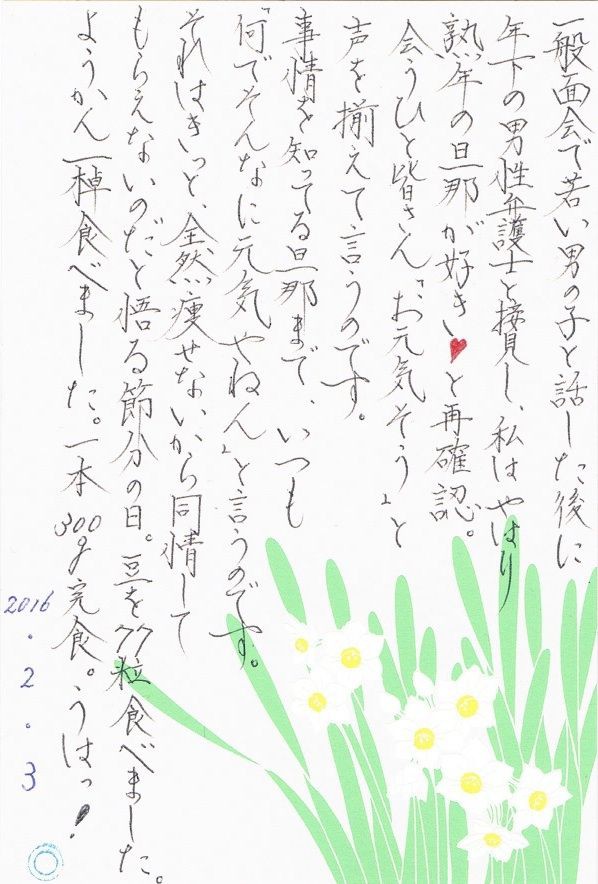 一般面会で若い男の子と話した後に
年下の男性弁護士と接見し、私はやはり
熟年の旦那が好き♥と再確認。
会うひと皆さん「お元気そう」と
声を揃えて言うのです。
事情を知ってる旦那まで、いつも
「何でそんなに元気やねん」と言うのです。
それはきっと、全然痩せないから同情して
もらえないのだと悟る節分の日。豆を77粒食べました。
ようかん一棹食べました。一本300g完食。うはっ！
2016.2.3